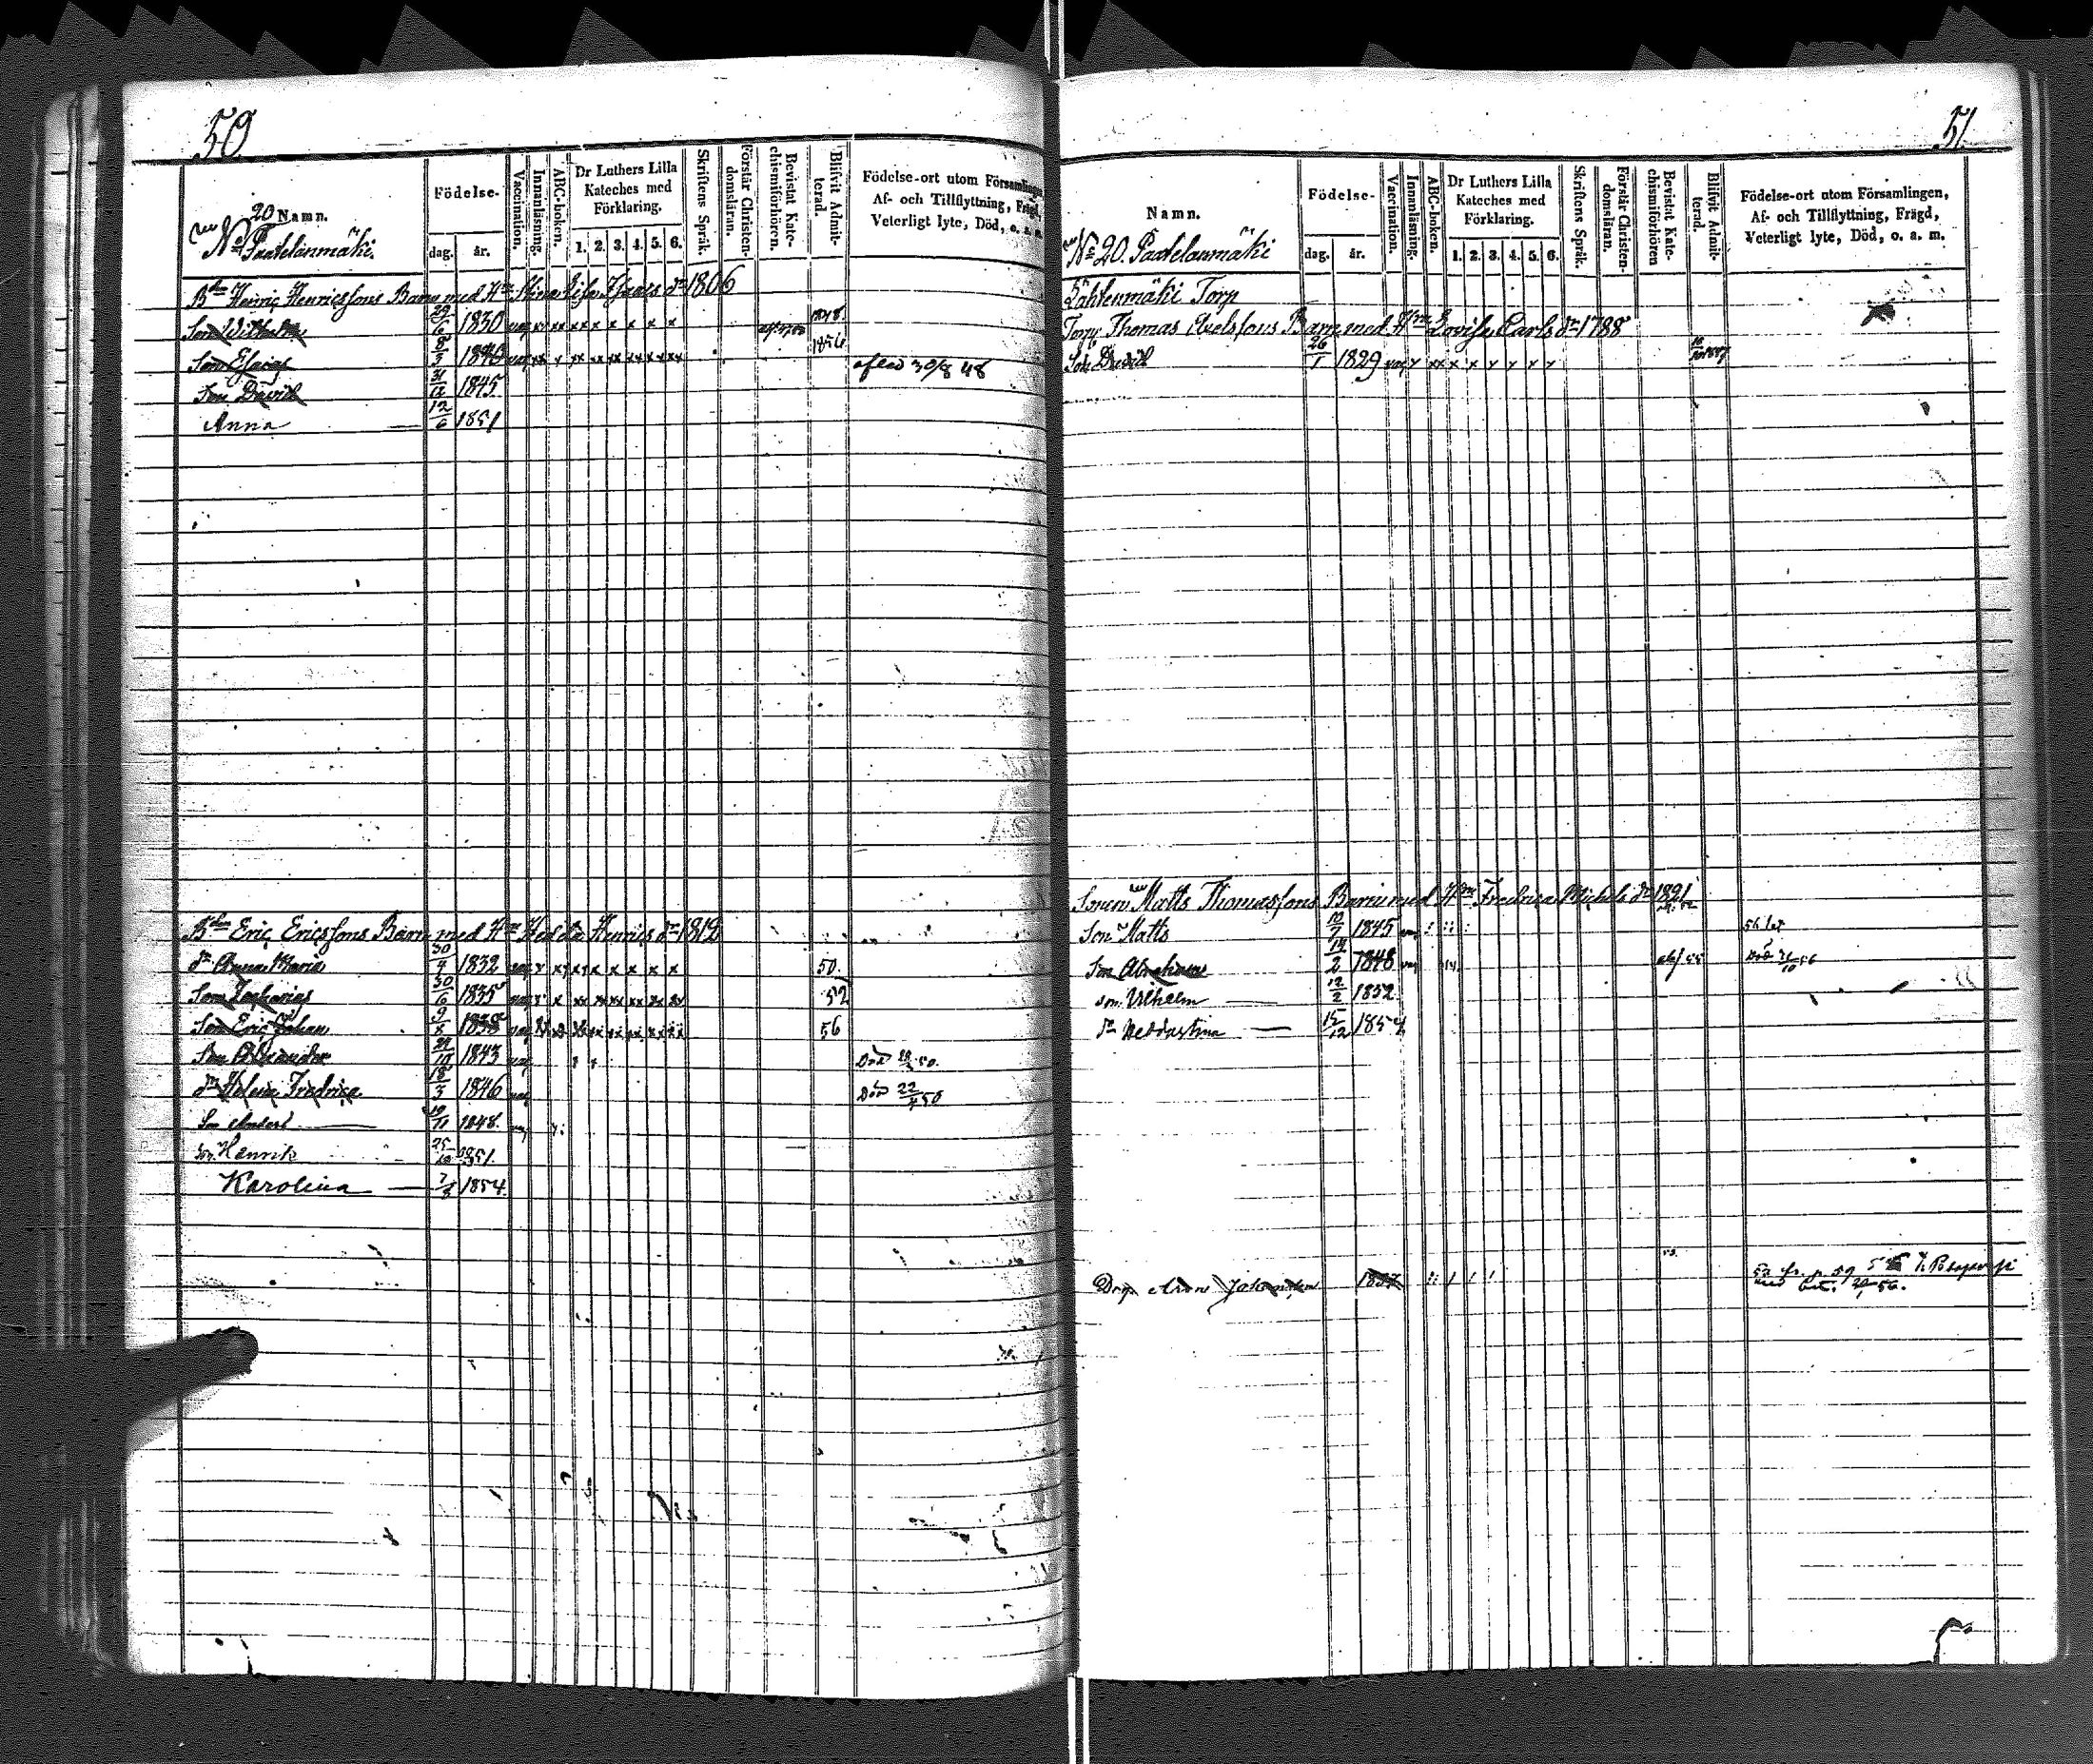 50
Namn.
Födelse-
dag.
år.
Vaccination.
Innanläsning.
ABC-boken.
Dr Luthers Lilla
Kateches med
Förklaring.
1. 2. 3. 4. 5. 6.
Skriftens Språk.
Förstår Christen-
domsläran.
Bevistat Kate-
chismiförhören.
Blifvit Admit-
terad.
Födelse-ort utom Församlingen,
Af- och Tillflyttning, Frägd,
Veterligt lyte, Död, o. a. m.
No 20 Paatelanmäki.
Bdn Henric Henricssons Barn med Hru Stina Lisa Isaacs dr 1806
Son Wilhelm 29/6 1830 vac x xx x x x x x x 1848.
Son Esaias 8/3 1840 vac xx x xx xx xx xx xx xx 1856
Son David 31/12 1845 aflid 30/8 48
Anna 12/6 1851
Bdn Eric Ericssons Barn med Hru Hedda Henrics dr 1812
dr Anna Maria 30/4 1832 vac 50.
Son Zacharias 30/6 1835 vac 52
Son Eric Johan 9/8 1838 vac 56
Son Alexander 1843 vac Död
dr Helena Fredrica 18/3 1846 vac Död 22/4 50
Son 1848.
son Henrik 1851.
Karolina 1854.
51
Namn.
Födelse-
dag.
år.
Vaccination.
Innanläsning.
ABC-boken.
Dr Luthers Lilla
Kateches med
Förklaring.
1. 2. 3. 4. 5. 6.
Skriftens Språk.
Förstår Christen-
domsläran.
Bevistat Kate-
chismiförhören
Blifvit Admit-
terad.
Födelse-ort utom Församlingen,
Af- och Tillflyttning, Frägd,
Veterligt lyte, Död, o. a. m.
No 20. Paatelanmäki
Lähteenmäki Torp
Torp. Thomas Axelssons Barn med Hru Lovisa Carls dr 1788
Son David 26/1 1829 vac x xx x x x x x x 1847
Sonen Matts Thomassons Barn med Hru Fredrica Michels dr 1821
Son Matts 1845
Son Abraham 1848 Död
son Vilhelm 12/2 1852
dr Heddastina 15/12 1854
Dr. Aron Johansson 1837